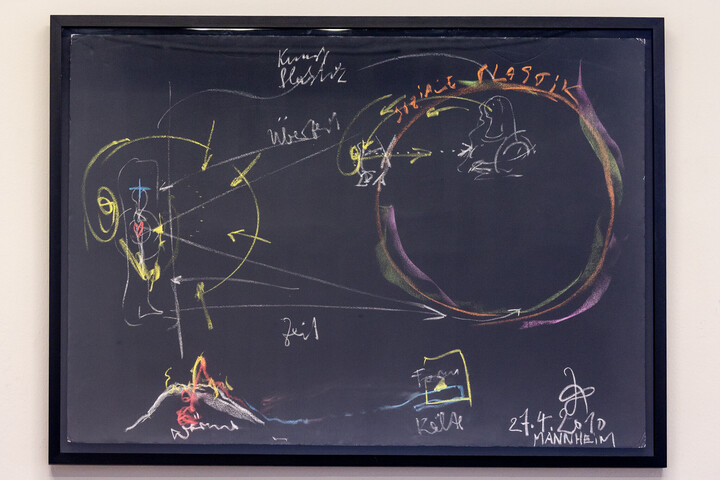 Kunst
Plastik
SOZIALE PLASTIK
Zeit
Form
Wärme
Kälte
27.4.2010
MANNHEIM